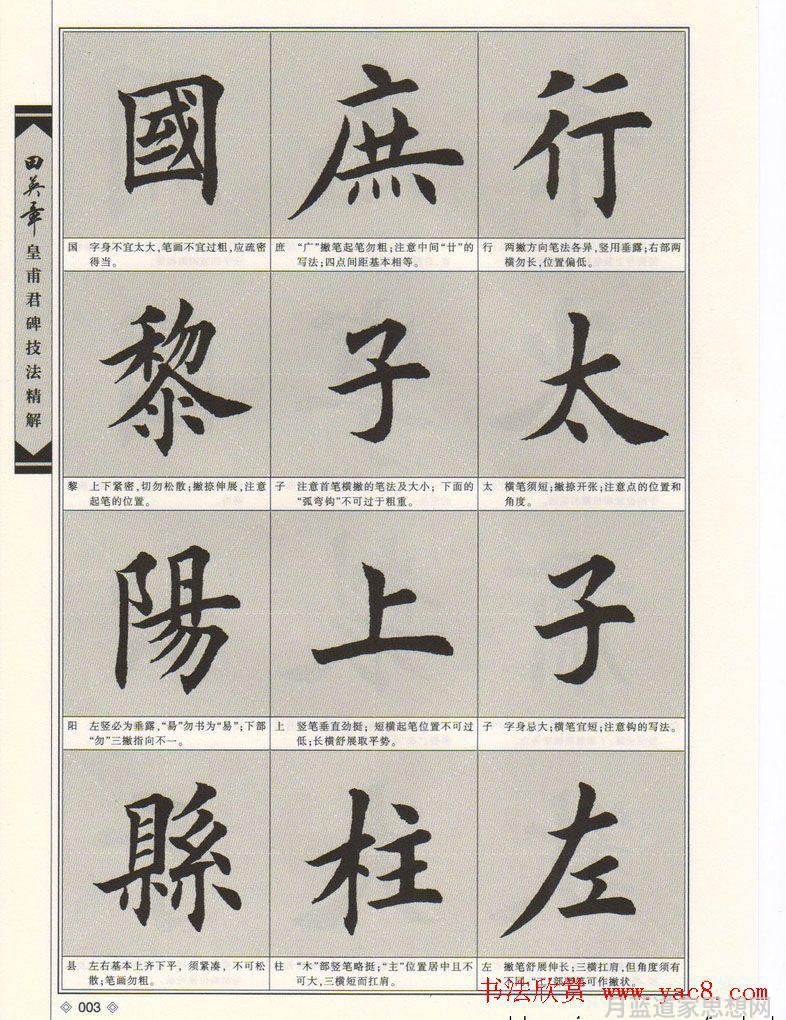 田英章
皇甫君碑技法精解
行
行 两撇方向笔法各异,竖用垂露;右部两
横勿长,位置偏低。
太
太 横笔须短;撇捺开张;注意点的位置和
角度。
子
子 字身忌大;横笔宜短;注意钩的写法。
左
左 撇笔舒展伸长;三横扛肩,但角度须有
不同,“工”部 笔可作撇状。
庶
庶 “广”撇笔起笔勿粗;注意中间“廿”的
写法;四点间距基本相等。
子
子 注意首笔横撇的笔法及大小;下面的
“弧弯钩”不可过于粗重。
上
上 竖笔垂直劲挺;短横起笔位置不可过
低;长横舒展取平势。
柱
柱 “木”部竖笔略挺;“主”位置居中且不
可大,三横短而扛肩。
國
国 字身不宜太大,笔画不宜过粗,应疏密
得当。
黎
黎 上下紧密,切勿松散;撇捺伸展,注意
起笔的位置。
陽
阳 左竖必为垂露,“昜”勿书为“易”;下部
“勿”三撇指向不一。
縣
县 左右基本上齐下平,须紧凑,不可松
散;笔画勿粗。
003
书法欣赏 www.yac8.com
月蓝道家思想网